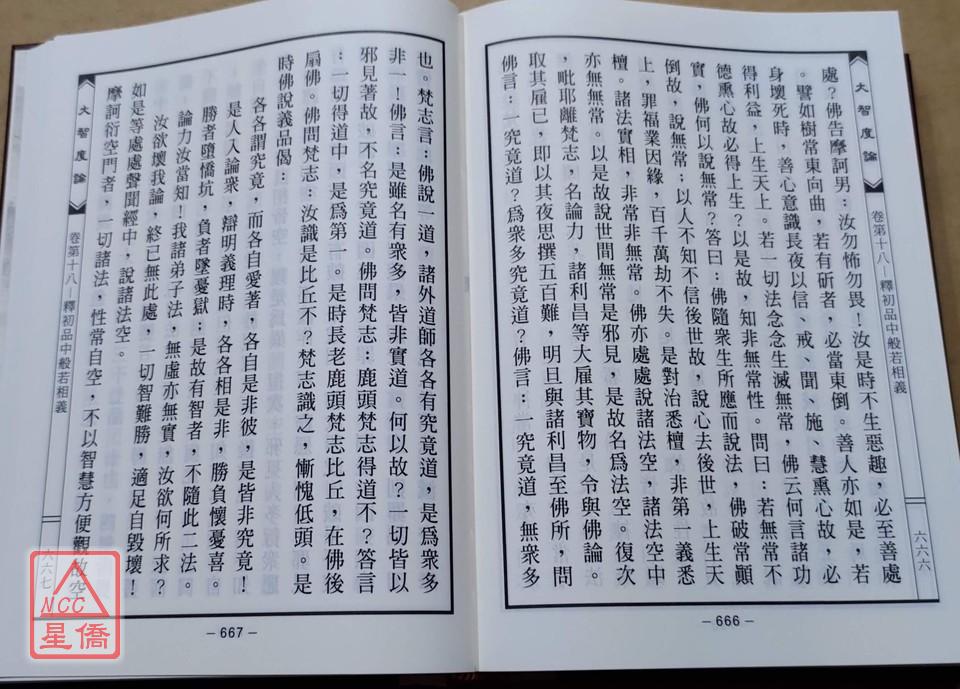 大智度論
卷第十八—釋初品中般若相義
六六六
處?佛告摩訶男:汝勿怖勿畏!汝是時不生惡趣,必至善處
。譬如樹常東向曲,若有斫者,必當東倒。善人亦如是,若
身壞死時,善心意識長夜以信、戒、聞、施、慧熏心故,必
得利益,上生天上。若一切法念念生滅無常,佛云何言諸功
德熏心故必得上生?以是故,知非無常性。問曰:若無常不
實,佛何以說無常?答曰:佛隨衆生所應而說法,佛破常顚
倒故,說無常;以人不知不信後世故,說心去後世,上生天
上,罪福業因緣,百千萬劫不失。是對治悉檀,非第一義悉
檀。諸法實相,非常非無常。佛亦處處說諸法空,諸法空中
亦無無常。以是故說世間無常是邪見,是故名爲法空。復次
,毗耶離梵志,名論力,諸利昌等大雇其寶物,令與佛論。
取其雇已,即以其夜思撰五百難,明旦與諸利昌至佛所,問
佛言:一究竟道?爲衆多究竟道?佛言:一究竟道,無衆多
— 666 —
也。梵志言:佛說一道,諸外道師各各有究竟道,是爲衆多
非一!佛言:是雖名有衆多,皆非實道。何以故?一切皆以
邪見著故,不名究竟道。佛問梵志:鹿頭梵志得道不?答言
:一切得道中,是爲第一。是時長老鹿頭梵志比丘,在佛後
扇佛。佛問梵志:汝識是比丘不?梵志識之,慚愧低頭。是
時佛說義品偈:
各各謂究竟,而各自愛著,各自是非彼,是皆非究竟!
是人入論衆,辯明義理時,各各相是非,勝負懷憂喜。
勝者墮憍坑,負者墜憂獄;是故有智者,不隨此二法。
論力汝當知!我諸弟子法,無虛亦無實,汝欲何所求?
汝欲壞我論,終已無此處,一切智難勝,適足自毀壞!
如是等處處聲聞經中,說諸法空。
摩訶衍空門者,一切諸法,性常自空,不以智慧方便觀故空
大智度論
卷第十八—釋初品中般若相義
六六七
— 667 —
NCC
星僑